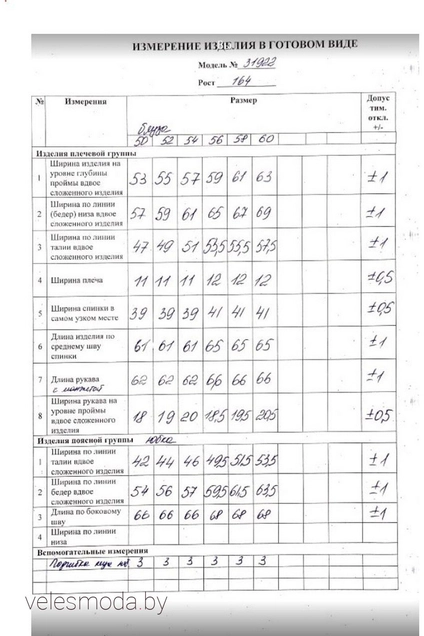 ИЗМЕРЕНИЕ ИЗДЕЛИЯ В ГОТОВОМ ВИДЕ
Модель № 31922
Рост 164
№ Измерения Размер Допус тим. откл. +/-
блуза
50 52 54 56 58 60
Изделия плечевой группы
1 Ширина изделия на уровне глубины проймы вдвое сложенного изделия 53 55 57 59 61 63 ±1
2 Ширина по линии (бедер) низа вдвое сложенного изделия 57 59 61 65 67 69 ±1
3 Ширина по линии талии вдвое сложенного изделия 47 49 51 53,5 55,5 57,5 ±1
4 Ширина плеча 11 11 11 12 12 12 ±0,5
5 Ширина спинки в самом узком месте 39 39 39 41 41 41 ±0,5
6 Длина изделия по среднему шву спинки 61 61 61 65 65 65 ±1
7 Длина рукава с манжетой 62 62 62 66 66 66 ±1
8 Ширина рукава на уровне проймы вдвое сложенного изделия 18 19 20 18,5 19,5 20,5 ±0,5
Изделия поясной группы юбка
1 Ширина по линии талии вдвое сложенного изделия 42 44 46 49,5 51,5 53,5 ±1
2 Ширина по линии бедер вдвое сложенного изделия 54 56 57 59,5 61,5 63,5 ±1
3 Длина по боковому шву 66 66 66 68 68 68 ±1
4 Ширина по линии низа
Вспомогательные измерения
3 3 3 3 3 3
velesmoda.by